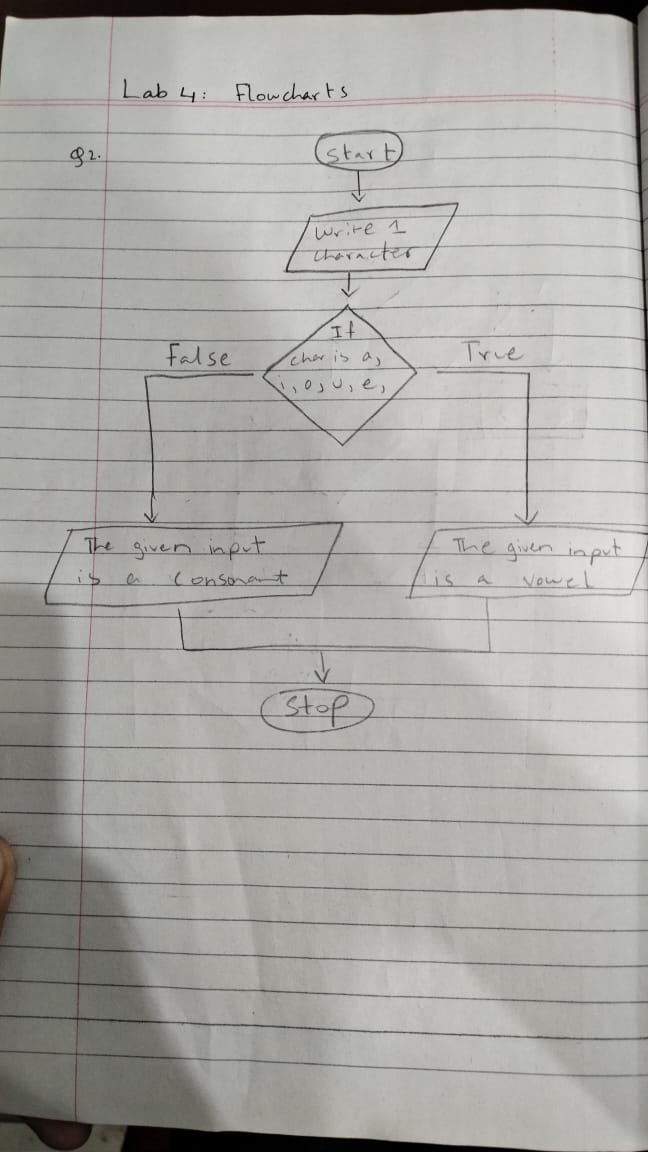 Lab 4: Flowcharts
Q2.
Start
Write 1
character
If
char is a,
i, o, u, e,
False
True
The given input
is a consonant
The given input
is a vowel
Stop